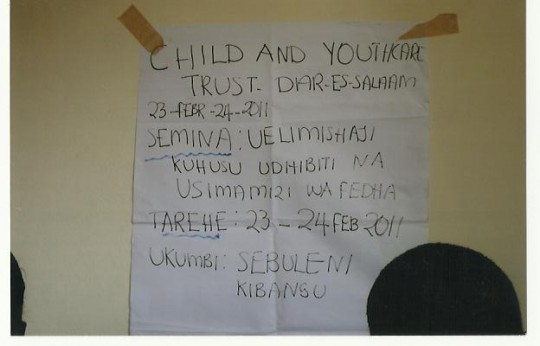 CHILD AND YOUTHCARE
TRUST- DAR-ES-SALAAM
23-FEBR-24-2011
SEMINA: UELIMISHAJI
KUHUSU UDHIBITI NA
USIMAMIZI WA FEDHA
TAREHE: 23 - 24 FEB 2011
UKUMBI: SEBULENI
KIBANGU